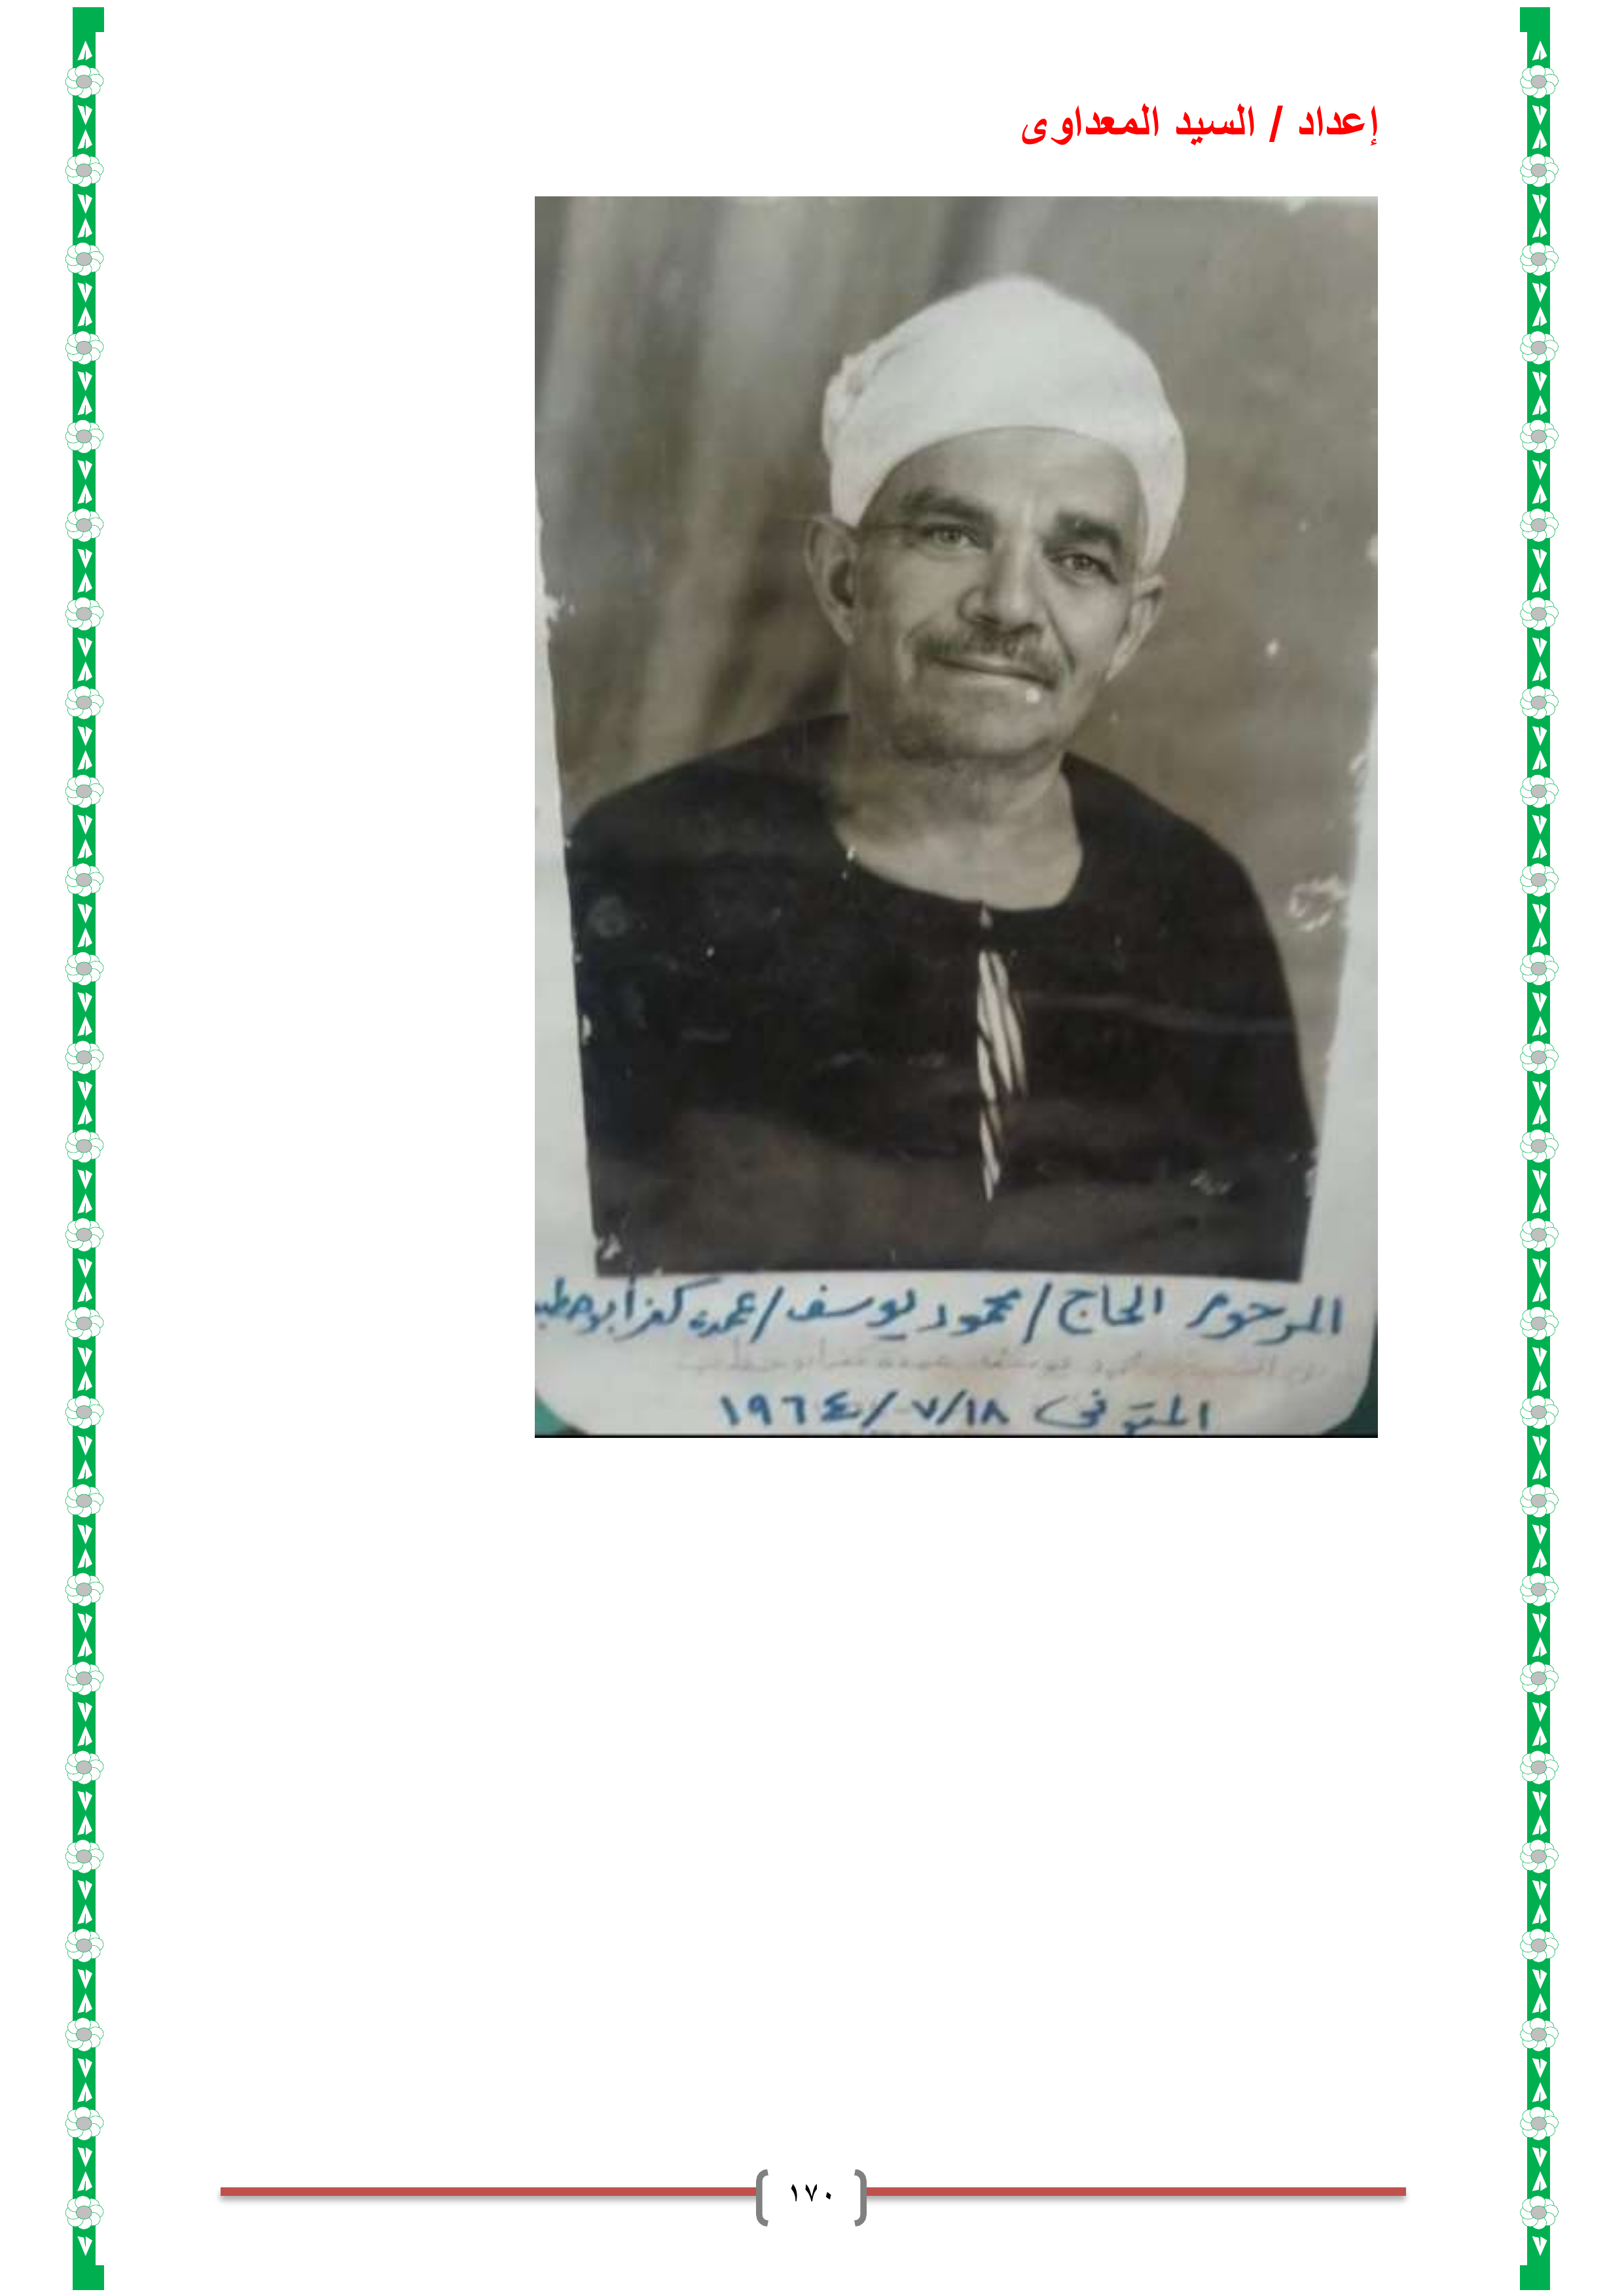 إعداد / السيد المعداوى
المرحوم الحاج / محمود يوسف / عمدة كفر أبو حطب
المتوفى ١٨/٧/١٩٦٤
١٧٠